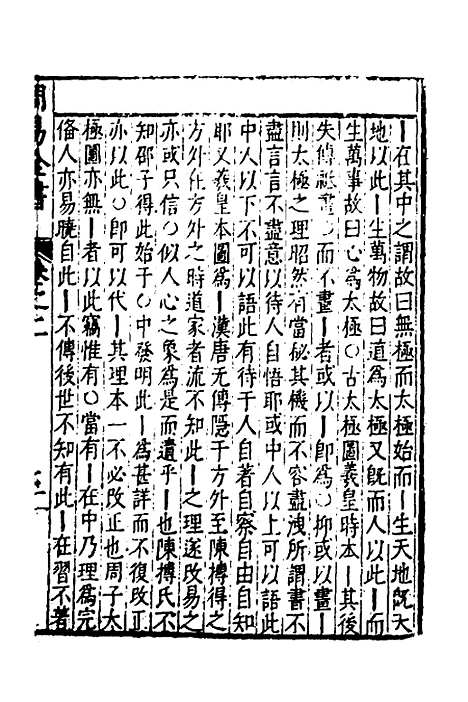 丨在其中之謂故曰無極而太極始而丨生天地旣天
地以此丨生萬物故曰道爲太極又旣而人以此丨而
生萬事故曰心爲太極○古太極圖羲皇時本丨其後
失傳誕畫○而不畫丨者或以丨即爲○抑或以畫丨
則太極之理昭然有當秘其機而不容盡洩所謂書不
盡言言不盡意以待人自悟耶或中人以上可以語此
中人以下不可以語此有待于人自著自察自由自知
耶乂羲皇本圖爲丨漢唐无傳隱于方外至陳摶得之
方外在方外之時道家者流不知此丨之理遂改易之
亦或只信○似人心之象爲是而遺乎丨也陳摶氏不
知邵子得此始于○中發明此丨爲甚詳而不復改正
亦以此○即可以代丨其理本一不必改正也周子太
極圖亦無丨者以此竊惟有○當有丨在中乃理爲完
俻人亦易曉自此丨不傳後世不知有此丨在習不著
周易全書
卷之二